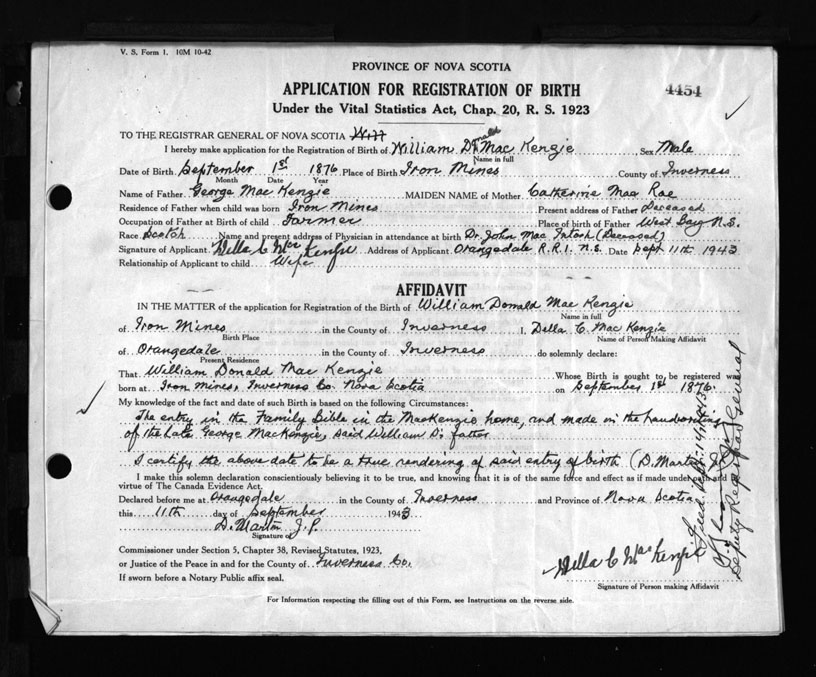 V. S. Form 1. 10M 10-42
PROVINCE OF NOVA SCOTIA
APPLICATION FOR REGISTRATION OF BIRTH
4454
Under the Vital Statistics Act, Chap. 20, R. S. 1923
TO THE REGISTRAR GENERAL OF NOVA SCOTIA
I hereby make application for the Registration of Birth of William Donald Mac Kenzie Sex Male
Name in full
Date of Birth September 1st 1876 Place of Birth Iron Mines County of Inverness
Month Date Year
Name of Father George Mac Kenzie MAIDEN NAME of Mother Catherine Mac Rae
Residence of Father when child was born Iron Mines Present address of Father Deceased
Occupation of Father at Birth of child Farmer Place of birth of Father West Bay N.S.
Race Scotch Name and present address of Physician in attendance at birth Dr. John Mac Intosh (Deceased)
Signature of Applicant Della C Mac Kenzie Address of Applicant Orangedale R.R.1. N.S. Date Sept. 11th 1943
Relationship of Applicant to child Wife
AFFIDAVIT
IN THE MATTER of the application for Registration of the Birth of William Donald Mac Kenzie
Name in full
of Iron Mines in the County of Inverness I, Della C. Mac Kenzie
Birth Place Name of Person Making Affidavit
of Orangedale in the County of Inverness do solemnly declare:
Present Residence
That William Donald Mac Kenzie Whose Birth is sought to be registered was
born at Iron Mines, Inverness Co. Nova Scotia on September 1st 1876.
My knowledge of the fact and date of such Birth is based on the following Circumstances:
The entry in the Family Bible in the MacKenzie home, and made in the handwriting
of the late George MacKenzie, said William D's father
I certify the above date to be a true rendering of said entry of birth (D. Martin J.P.
I make this solemn declaration conscientiously believing it to be true, and knowing that it is of the same force and effect as if made under oath and by
virtue of The Canada Evidence Act.
Declared before me at Orangedale in the County of Inverness and Province of Nova Scotia
this 11th day of September 1943
D. Martin J.P.
Signature of
Commissioner under Section 5, Chapter 38, Revised Statutes, 1923,
or Justice of the Peace in and for the County of Inverness Co.
If sworn before a Notary Public affix seal.
Della C Mac Kenzie
Signature of Person making Affidavit
For Information respecting the filling out of this Form, see Instructions on the reverse side.
Deputy Registrar General